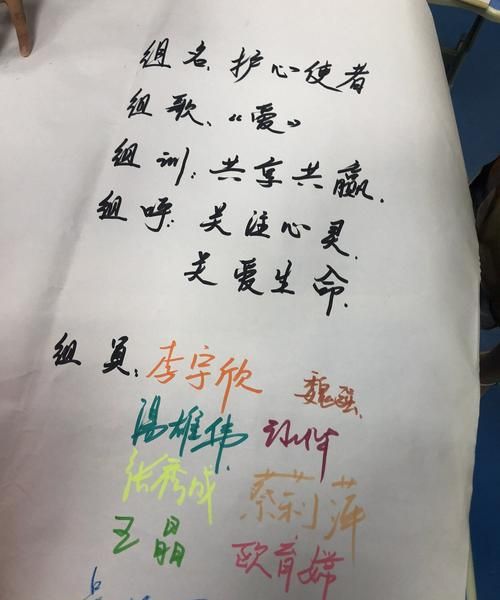 组名:护心使者
组歌:《爱》
组训:共享共赢.
组呼:关注心灵.
关爱生命.
组员:李宇欣 魏强.
汤雄伟
张秀成 蔡莉萍
王晶 欧育嫦